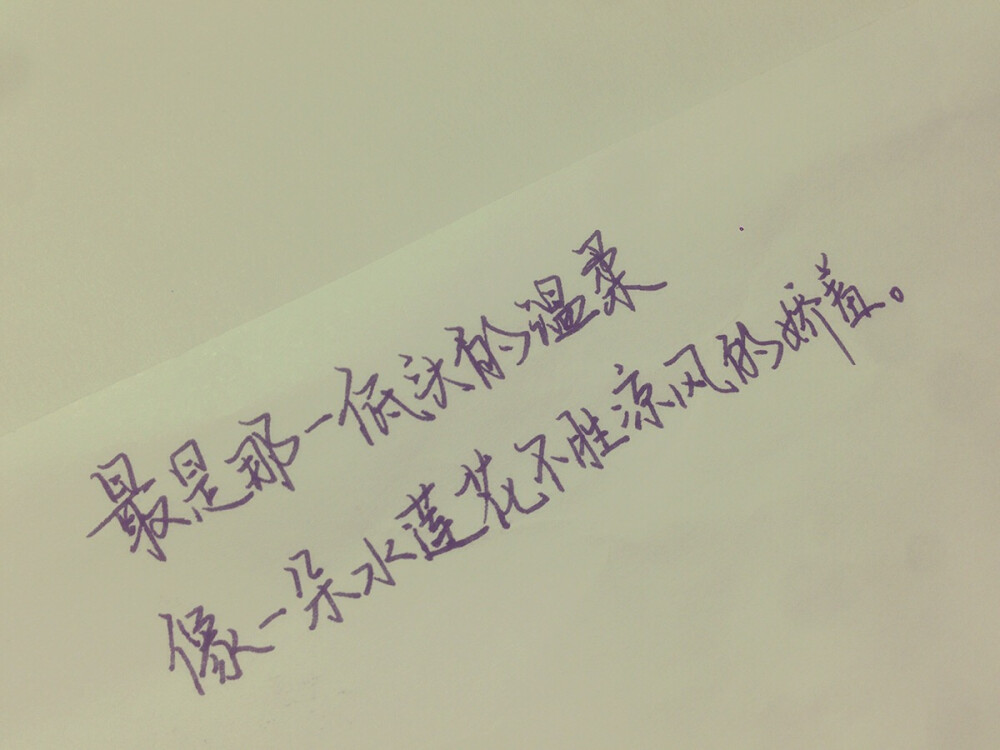 最是那一低头的温柔
像一朵水莲花不胜凉风的娇羞。